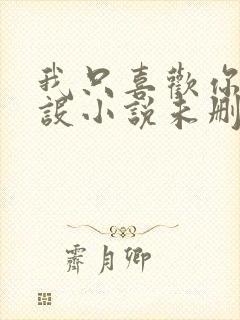 我只喜歡你
設小說未刪
霽月卿